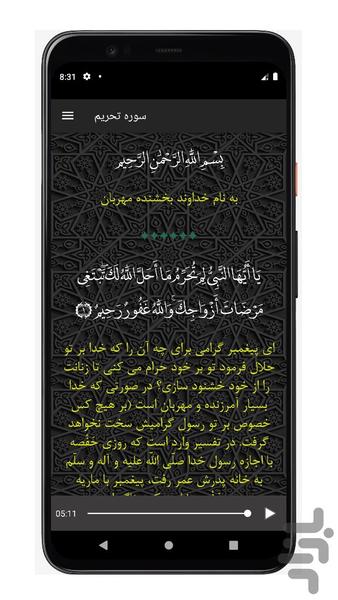 8:31
سوره تحریم
بِسْمِ اللَّهِ الرَّحْمَٰنِ الرَّحِيمِ
به نام خداوند بخشنده مهربان
يَا أَيُّهَا النَّبِيُّ لِمَ تُحَرِّمُ مَا أَحَلَّ اللَّهُ لَكَ ۖ تَبْتَغِي
مَرْضَاتَ أَزْوَاجِكَ ۚ وَاللَّهُ غَفُورٌ رَحِيمٌ ﴿١﴾
ای پیغمبر گرامی برای چه آن را که خدا بر تو
حلال فرمود تو بر خود حرام می کنی تا زنانت
را از خود خشنود سازی؟ در صورتی که خدا
بسیار آمرزنده و مهربان است (بر هیچ کس
خصوص بر تو رسول گرامیش سخت نخواهد
گرفت. در تفسیر وارد است که روزی حَفْصه
با اجازه رسول خدا صلّی الله علیه و آله و سلّم
به خانه پدرش عمر رفت، پیغمبر با ماریه
05:11
بازار